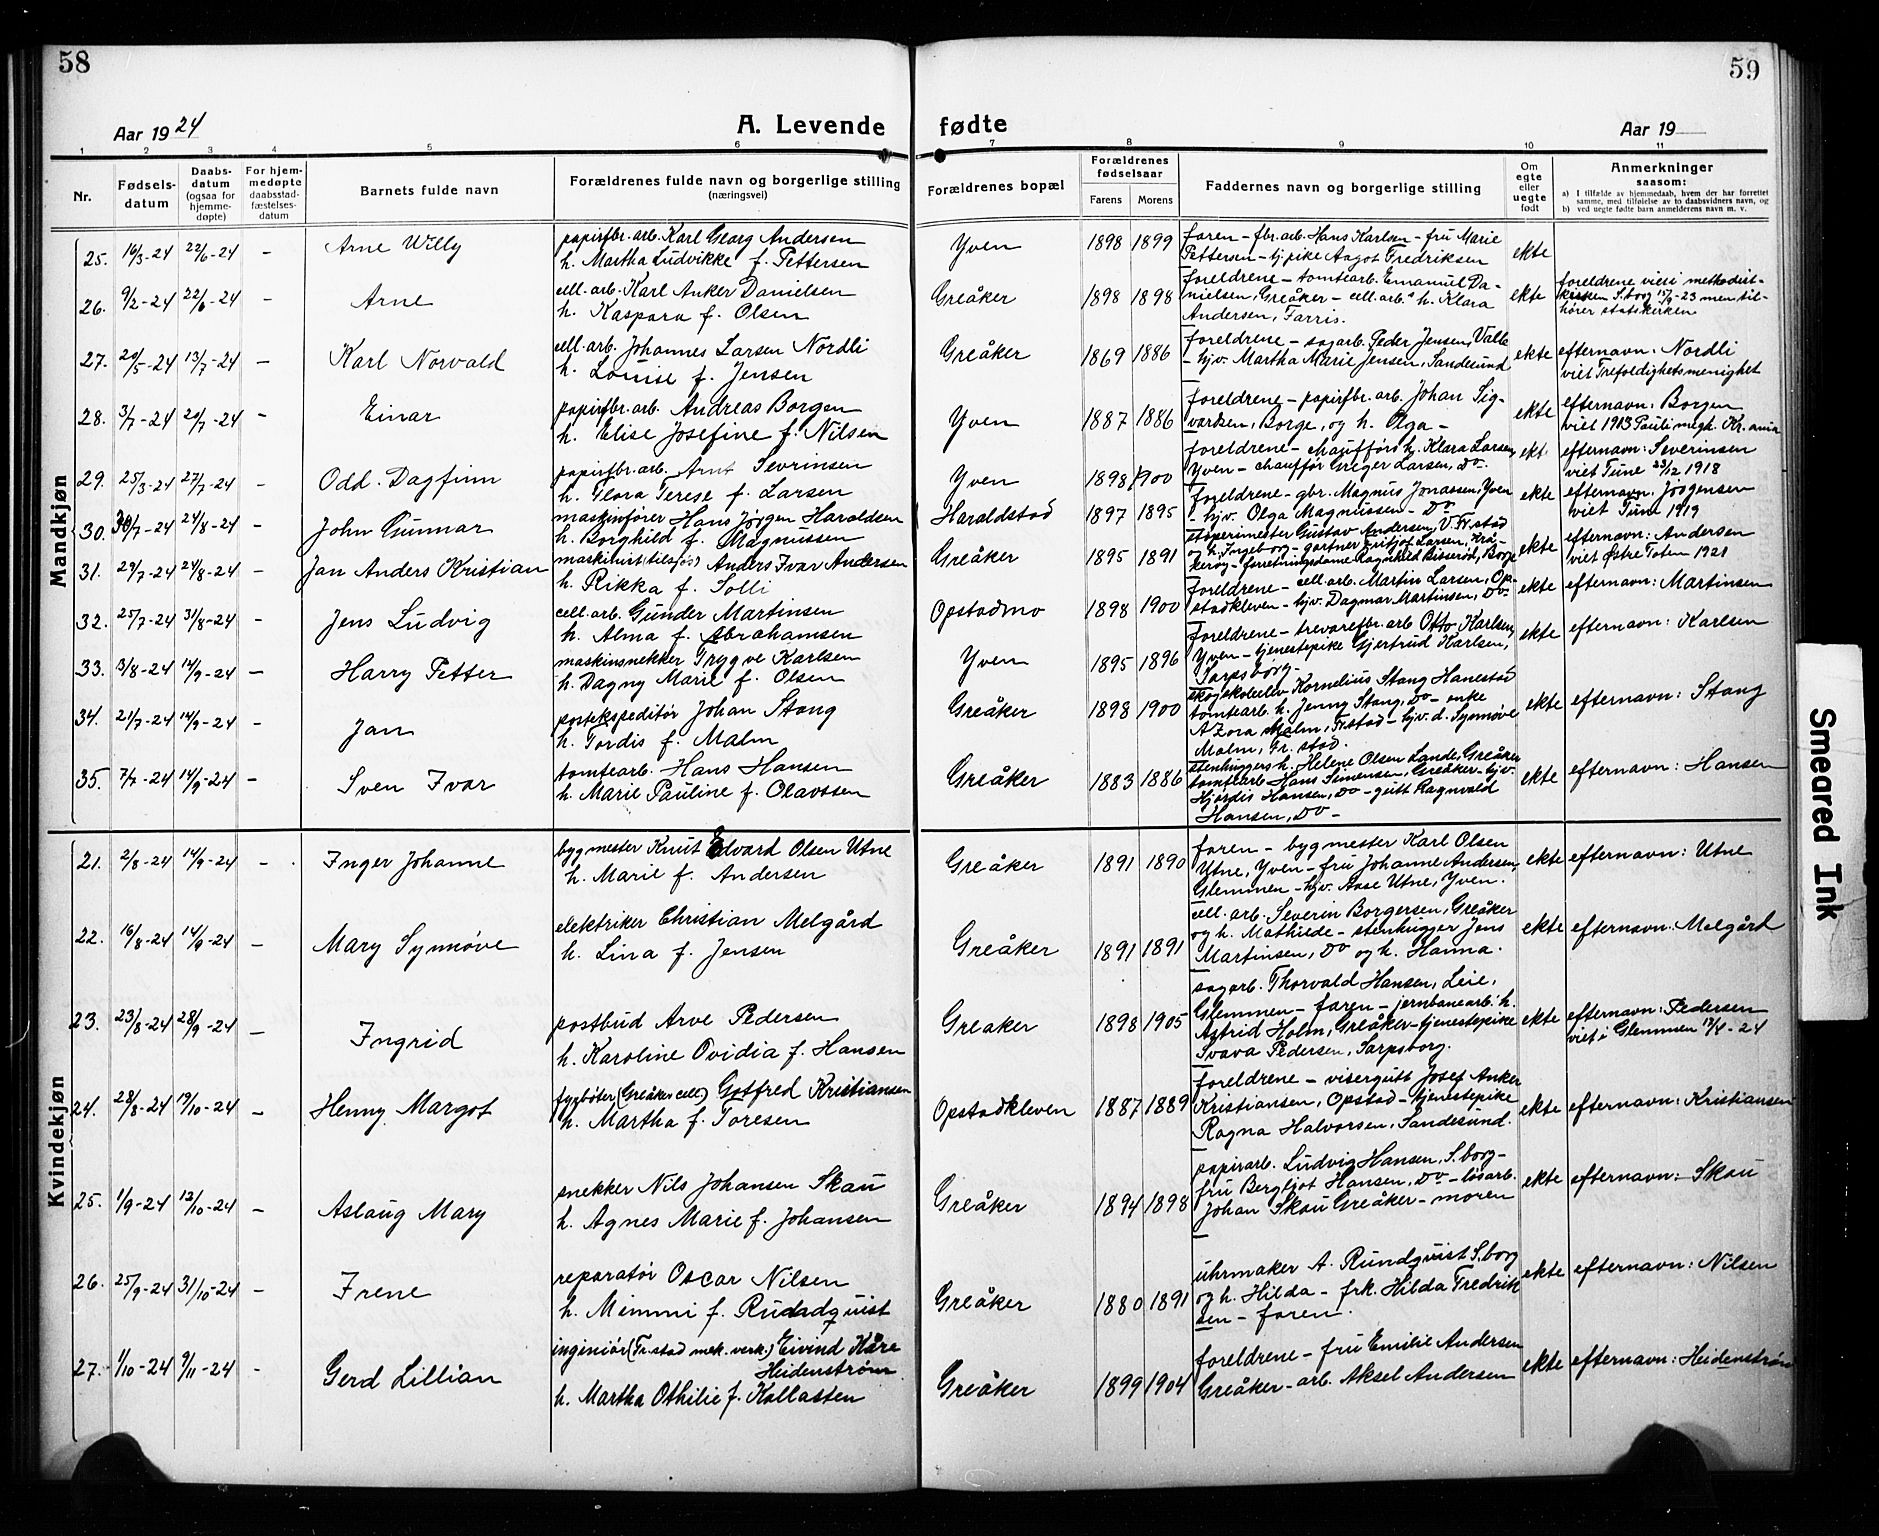 58
59
Aar 1924
A. Levende fødte
Aar 19
1 2 3 4 5 6 7 8 9 10 11
Nr.
Fødsels-
datum
Daabs-
datum
(ogsaa for
hjemme-
døpte)
For hjem-
medøpte
daabsstad-
fæstelses-
datum
Barnets fulde navn
Forældrenes fulde navn og borgerlige stilling
(næringsvei)
Forældrenes bopæl
Forældrenes
fødselsaar
Farens Morens
Faddernes navn og borgerlige stilling
Om
egte
eller
uegte
født
Anmerkninger
saasom:
a) I tilfælde av hjemmedaab, hvem der har forrettet
samme, med tilføielse av to daabsvidners navn, og
b) ved uegte fødte barn anmelderens navn m. v.
Mandkjøn
25. 16/3-24 22/6-24 - Arne Willy
papirfbr. arb. Karl Georg Andersen
h. Martha Ludvikke f. Pettersen
Yven 1898 1899
faren - fbr. arb. Hans Karlsen - fru Marie
Pettersen - tj.pike Aagot Fredriksen
ekte
26. 9/2-24 22/6-24 - Arne
cell. arb. Karl Anker Danielsen
h. Kaspara f. Olsen
Greåker 1898 1898
foreldrene - tomtearb. Emanuel Da-
nielsen, Greåker - cell. arb.s h. Klara
Andersen, Farris.
ekte
foreldrene viet i methodist-
kirken S.borg 15/9-23 men til-
hører statskirken
27. 20/5-24 13/7-24 - Karl Norvald
cell. arb. Johannes Larsen Nordli
h. Louise f. Jensen
Greåker 1869 1886
foreldrene - sagarb. Peder Jensen, Valle
- hjv. Martha Marie Jensen, Sandesund
ekte
efternavn: Nordli
viet Trefoldighetsmenighet
28. 3/7-24 20/7-24 - Einar
papirfbr. arb. Andreas Borgen
h. Elise Josefine f. Nilsen
Yven 1887 1886
foreldrene - papirfbr. arb. Johan Sig-
vartsen, Borge, og h. Olga -
ekte
efternavn: Borgen
viet 1913 Pauli mgh. Kr.ania
29. 25/3-24 27/7-24 - Odd. Dagfinn
papirfbr. arb. Arnt Sevrinsen
h. Flora Terese f. Larsen
Yven 1898 1900
foreldrene - chaufførs h. Klara Larsen,
Yven - chauffør Greger Larsen, Do.
ekt.
efternavn: Severinsen
viet Tune 23/12 1918
30. 30/7-24 24/8-24 - John Gunnar
maskinfører Hans Jørgen Haraldsen
h. Borghild f. Magnussen
Haraldstad 1897 1895
foreldrene - gbr. Magnus Jonassen, Yven
- hjv. Olga Magnussen - Do
ekte
efternavn: Jørgensen
viet Tune 1919
31. 29/7-24 24/8-24 - Jan Anders Kristian
maskinist (tilsjøs) Anders Ivar Andersen
h. Rikka f. Solli
Greåker 1895 1891
støperimester Gustav Andersen, V. Fr.stad
og h. Ingeborg - gartner Fritjof Larsen, Krå-
kerøy - forretningsdame Ragnhild Bisserød, Borge
ekte
efternavn: Andersen
viet Østre Toten 1921
32. 25/7-24 31/8-24 - Jens Ludvig
cell. arb. Gunder Martinsen
h. Alma f. Abrahamsen
Opstadmo 1898 1900
foreldrene - cell. arb. Martin Larsen, Op-
stadkleven - hjv. Dagmar Martinsen, Do.
ekte
efternavn: Martinsen
33. 3/8-24 14/9-24 - Harry Petter
maskinsnekker Trygve Karlsen
h. Dagny Marie f. Olsen
Yven 1895 1896
foreldrene - trevarefbr. arb Otto Karlsen,
Yven - tjenestepike Gjertrud Karlsen,
Sarpsborg.
ekte
efternavn: Karlsen
34. 21/7-24 14/9-24 - Jan
postekspeditør Johan Stang
h. Tordis f. Malm
Greåker 1898 1900
skogskoleelev Kornelius Stang Hanestad
tomtearb. h. Jenny Stang, Do - enke
A Zora Malm, Fr.stad - hjv. d. Synnøve
Malm, Fr. stad.
ekte
efternavn: Stang
35. 7/7-24 14/9-24 - Sven Ivar
tomtearb. Hans Hansen
h. Marie Pauline f. Olavssen
Greåker 1883 1886
stenhuggers h. Helene Olsen Lande, Greåker
tomtearb Hans Simensen, Greåker - hjv.
Hjørdis Hansen, Do - gutt Ragnvald
Hansen, Do -
ekte
efternavn: Hansen
Kvindekjøn
21. 2/8-24 14/9-24 - Inger Johanne
bygmester Knut Edvard Olsen Utne
h. Marie f. Andersen
Greåker 1891 1890
faren - bygmester Karl Olsen
Utne, Yven - fru Johanne Andersen,
Glemmen - hjv. Aase Utne, Yven.
ekte
efternavn: Utne
22. 16/8-24 14/9-24 - Mary Synnøve
elektriker Christian Melgård
h. Lina f. Jensen
Greåker 1891 1891
cell. arb. Severin Borgersen, Greåker
og h. Mathilde - stenhugger Jens
Martinsen, Do og h. Hanna.
ekte
efternavn: Melgård
23. 23/8-24 28/9-24 - Ingrid
postbud Arve Pedersen
h. Karoline Ovidia f. Hansen
Greaker 1898 1905
sagarb. Thorvald Hansen, Leie,
Glemmen - faren - jernbanearb. h.
Astrid Holm, Greåker - tjenestepike
Svava Pedersen, Sarpsborg.
ekte
efternavn: Pedersen
viet i Glemmen 12/4-24
24. 28/8-24 19/10-24 - Henny Margot
fyrbøter (Greåker cell) Gotfred Kristiansen
h. Martha f. Toresen
Opstadkleven 1887 1889
foreldrene - visergutt Josef Anker
Kristiansen, Opstad - tjenestepike
Ragna Halvorsen, Sandesund.
ekte
efternavn: Kristiansen
25. 1/9-24 12/10-24 - Aslaug Mary
snekker Nils Johansen Skau
h. Agnes Marie f. Johansen
Greåker 1894 1898
papirarb. Ludvig Hansen, S.borg -
fru Bergljot Hansen, Do - løsarb.
Johan Skau Greåker - moren
ekte
efternavn: Skau
26. 25/9-24 31/10-24 - Irene
reparatør Oscar Nilsen
h. Mimmi f. Rudadquist
Greåker 1880 1891
uhrmaker A. Rundquist S.borg
og h. Hilda - frk. Hilda Fredrik
sen - faren.
ekte
efternavn: Nilsen
27. 1/10-24 9/11-24 - Gerd Lillian
ingeniør (Fr.stad mek. verk.) Eivind Kåre
Heidenstrøm
h. Martha Othilie f. Kollasten
Greåker 1899 1904
foreldrene - fru Emilie Andersen
Greåker - arb. Aksel Andersen
ekte
efternavn: Heidenstrøm
Smeared Ink